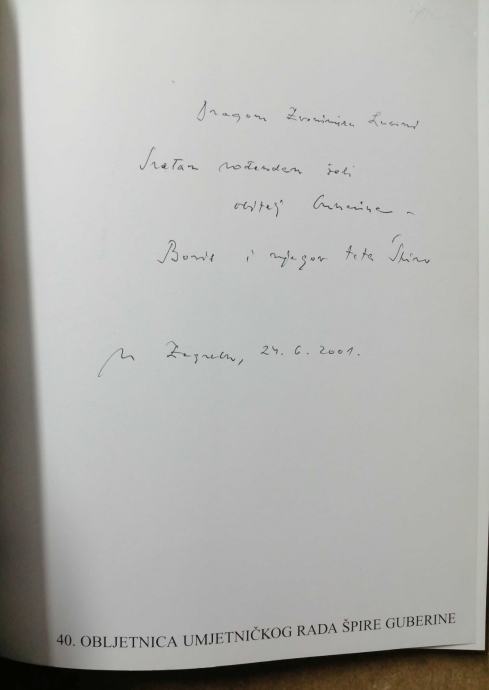 Dragom Zvonimiru
Sretan rođendan želi
obitelj Guberina -
Boris i njegov tata Špiro
U Zagrebu, 24. 6. 2001.
40. OBLJETNICA UMJETNIČKOG RADA ŠPIRE GUBERINE